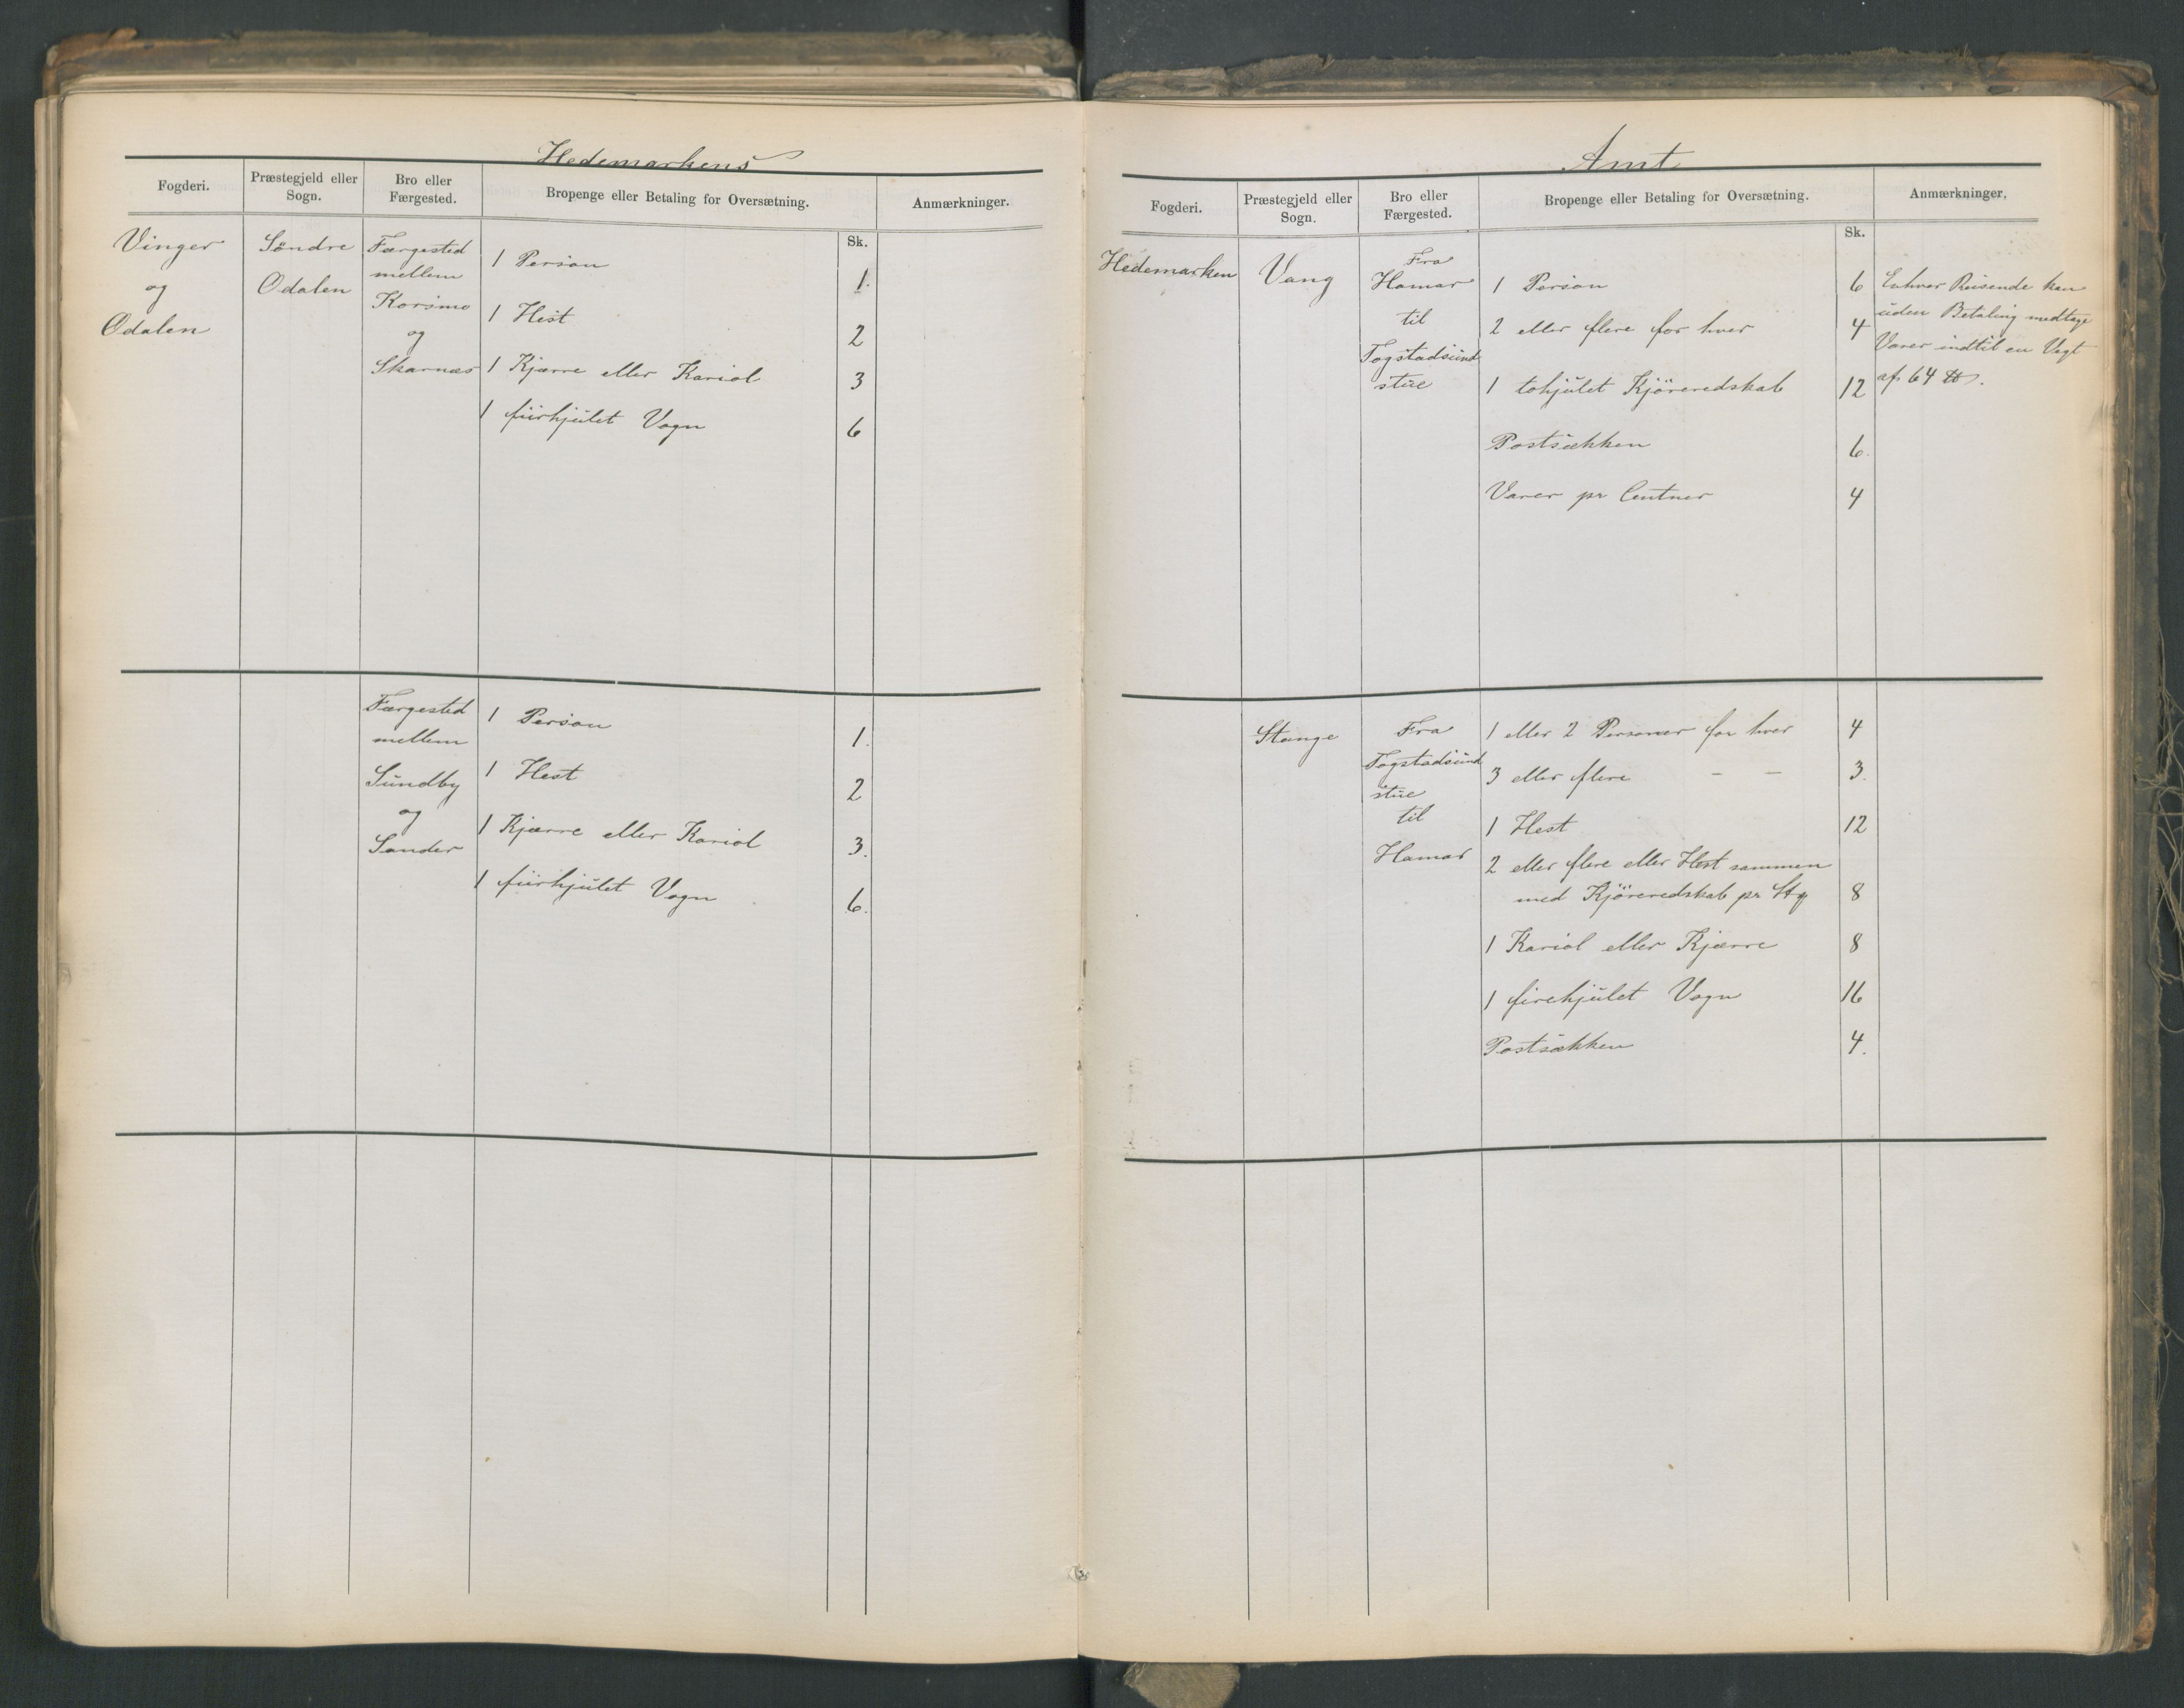 Hedemarkens
Fogderi.
Præstegjeld eller
Sogn.
Bro eller
Færgested.
Bropenge eller Betaling for Oversætning.
Anmærkninger.
Sk.
Vinger
og
Odalen
Søndre
Odalen
Færgested
mellem
Korsmo
og
Skarnæs
1 Person 1.
1 Hest 2
1 Kjærre eller Kariol 3
1 fiirhjulet Vogn 6
Færgested
mellem
Sundby
og
Sander
1 Person 1.
1 Hest 2
1 Kjærre eller Kariol 3.
1 fiirhjulet Vogn 6.
Amt
Fogderi.
Præstegjeld eller
Sogn.
Bro eller
Færgested.
Bropenge eller Betaling for Oversætning.
Anmærkninger.
Sk.
Hedemarken
Vang
Fra
Hamar
til
Togstadsund
stue
1 Person 6
2 eller flere for hver 4
1 tohjulet Kjøreredskab 12
Postsækken 6.
Varer pr Centner 4
Enhver Reisende kan
uden Betaling medtage
Varer indtil en Vægt
af 64 ℔.
Stange
Fra
Togstadsund
stue
til
Hamar
1 eller 2 Personer for hver 4
3 eller flere – – 3.
1 Hest 12
2 eller flere eller Hest sammen
med Kjøreredskab pr Stk 8
1 Kariol eller Kjærre 8
1 firehjulet Vogn 16
Postsækken 4.